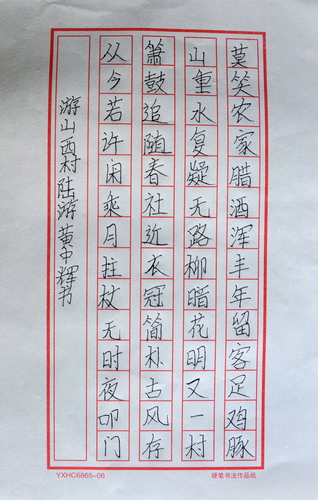 莫笑农家腊酒浑丰年留客足鸡豚
山重水复疑无路柳暗花明又一村
箫鼓追随春社近衣冠简朴古风存
从今若许闲乘月拄杖无时夜叩门
游山西村陆游黄中辉书
YXHC6865-06
硬笔书法作品纸